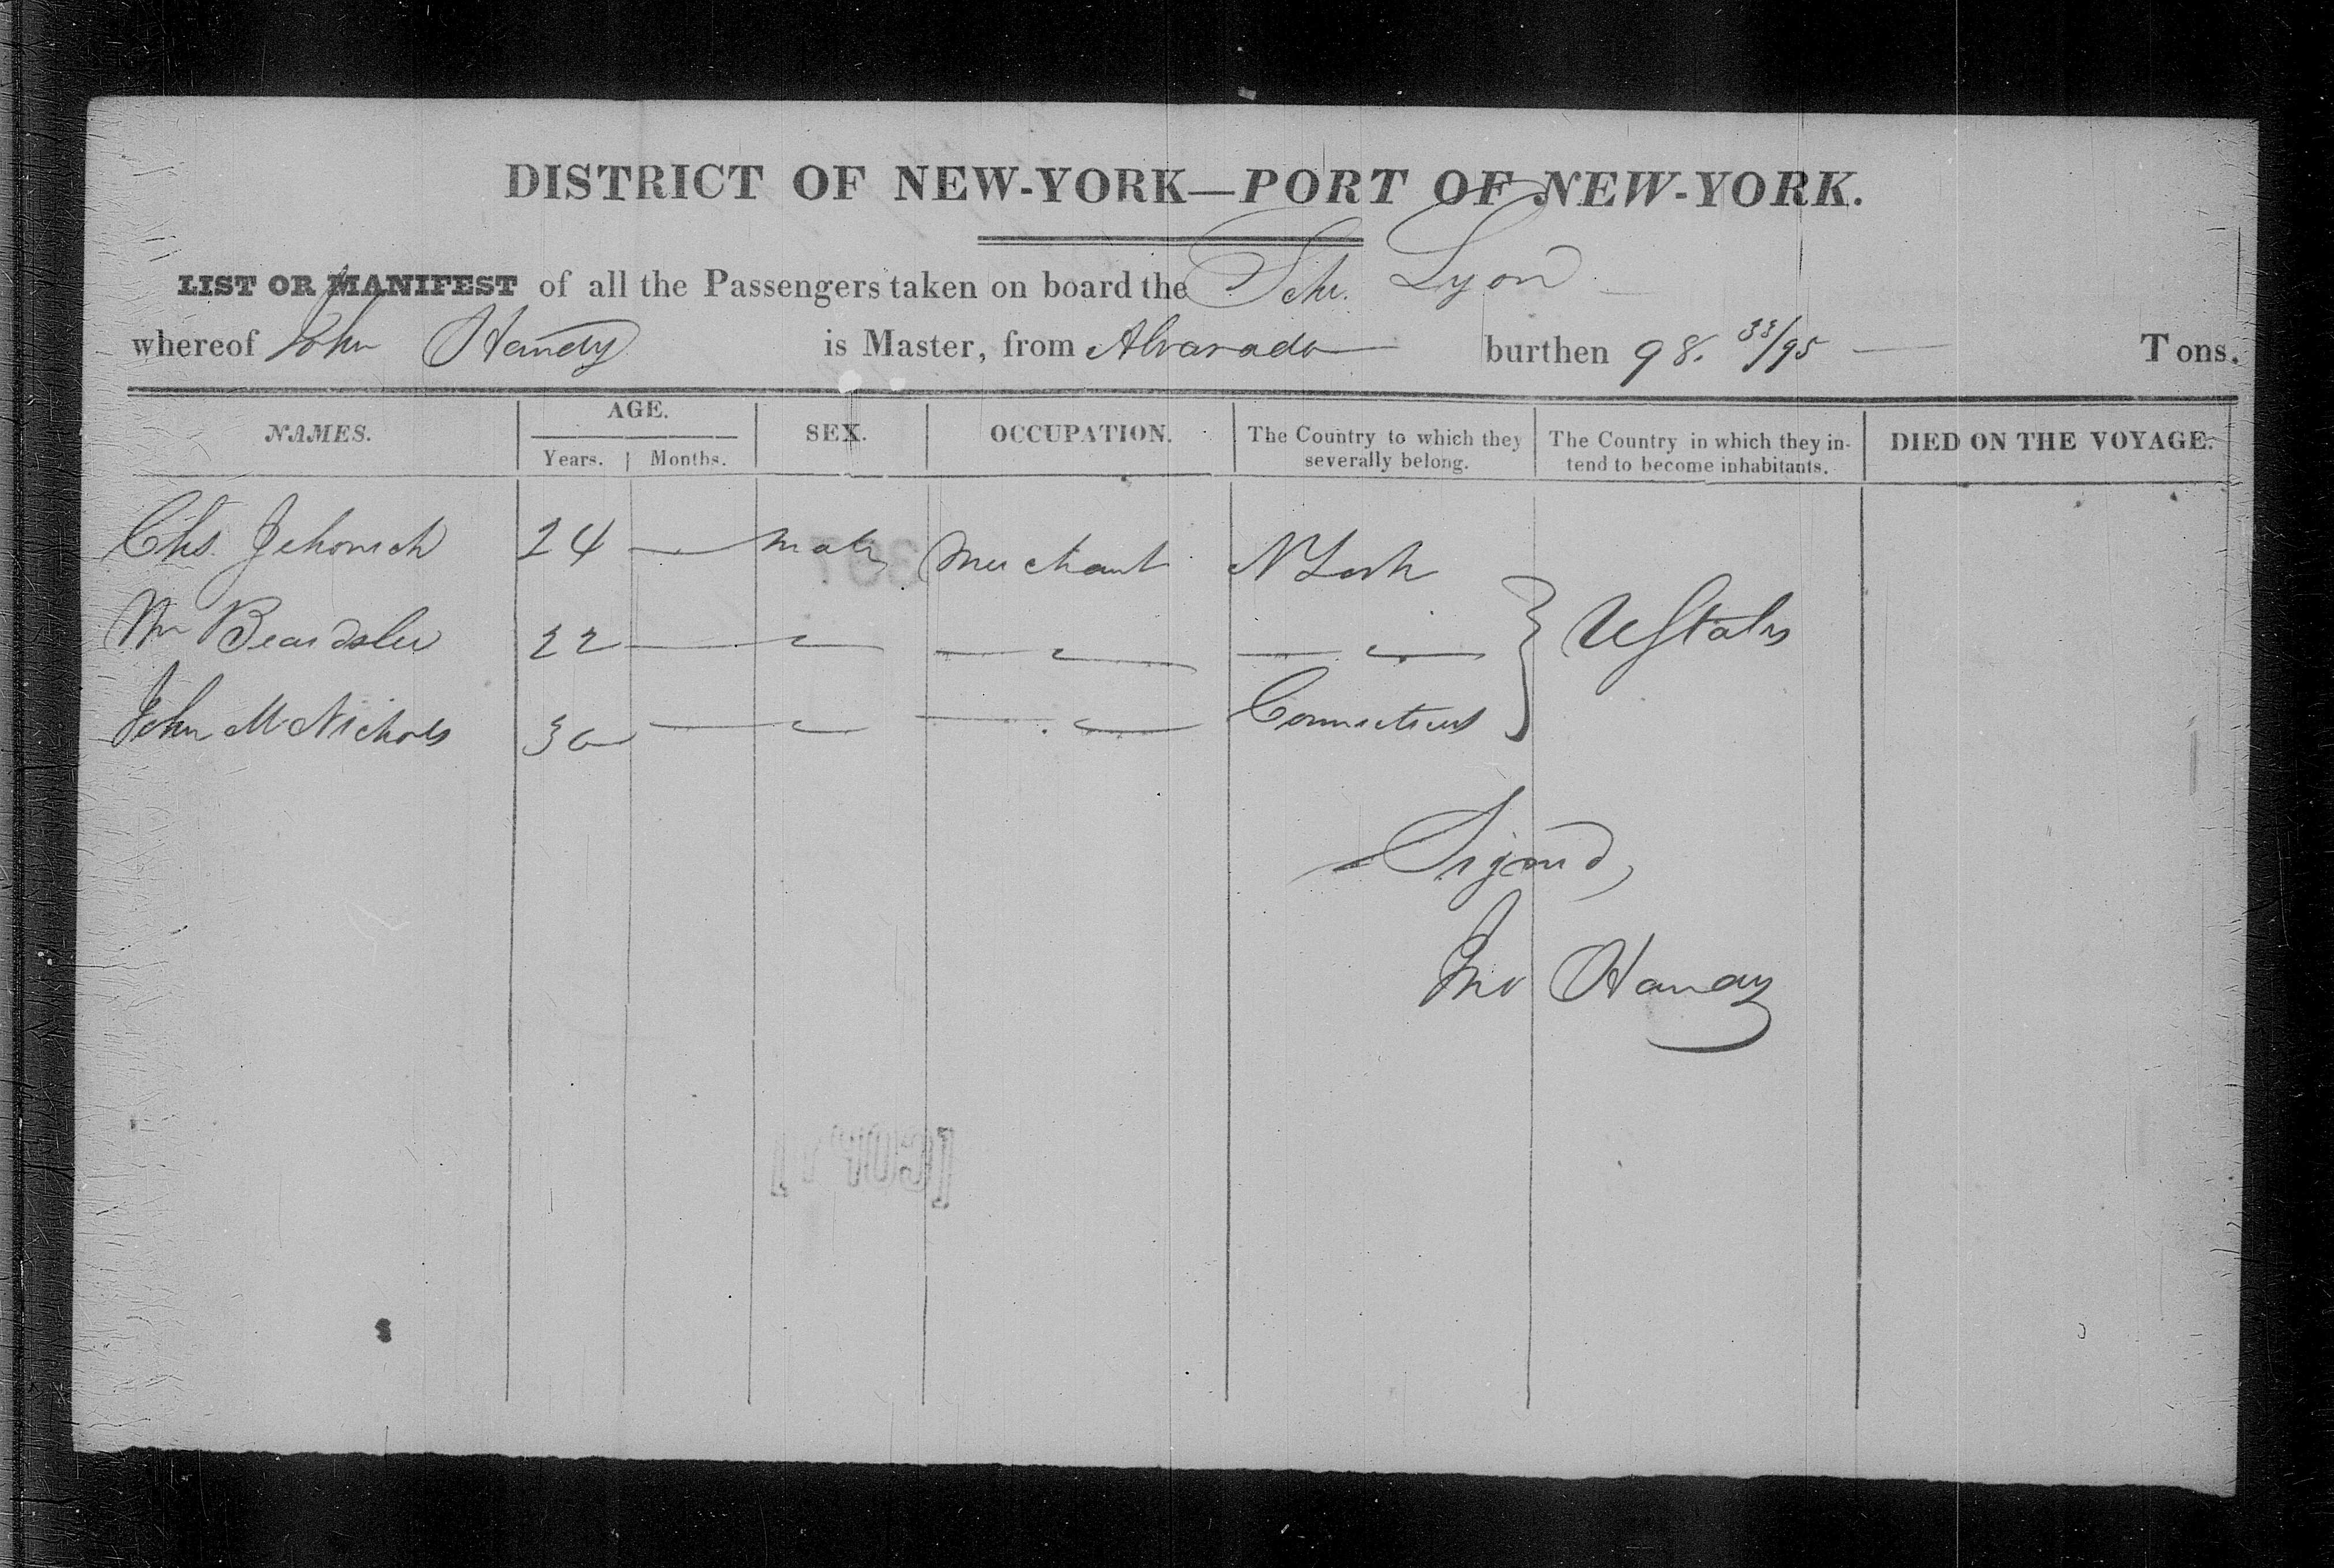 DISTRICT OF NEW-YORK—PORT OF NEW-YORK.
LIST OR MANIFEST of all the Passengers taken on board the Schr. Lyon
whereof John Handy is Master, from Alvarado burthen 98. 33/95 Tons.
NAMES. AGE. SEX. OCCUPATION. The Country to which they severally belong. The Country in which they intend to become inhabitants. DIED ON THE VOYAGE.
Years. Months.
Chs. 24 — male Merchant N York
Wm Beardslee 22 — " — " — " } UStates
John M Nichols 30 — " — " Connecticut
Signed,
Jno Handy